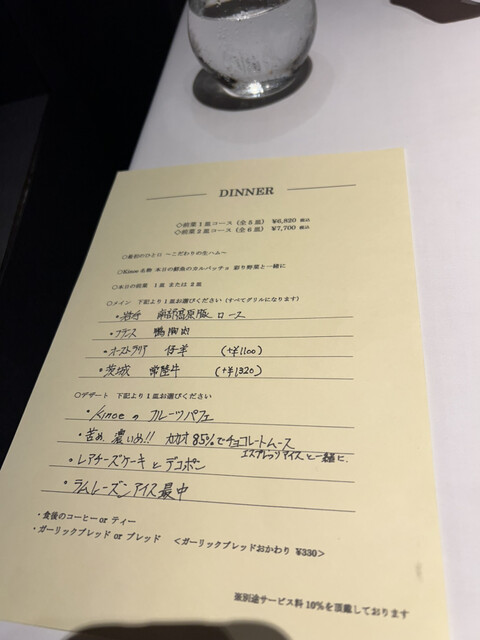 DINNER
◇前菜1皿コース（全5皿） ¥6,820 税込
◇前菜2皿コース（全6皿） ¥7,700 税込
◇最初のひと口 ～こだわりの生ハム～
◇Kinoe名物 本日の鮮魚のカルパッチョ 彩り野菜と一緒に
◇本日の前菜 1皿 または 2皿
◇メイン 下記より1皿お選びください（すべてグリルになります）
・岩手 南部高原豚 ロース
・フランス 鴨胸肉
・オーストラリア 仔羊 (+¥1100)
・茨城 常陸牛 (+¥1320)
◇デザート 下記より1皿お選びください
・Kinoeの フルーツパフェ
・苦め、濃いめ!! カカオ85%でチョコレートムース
エスプレッソアイスと一緒に
・レアチーズケーキとデコポン
・ラムレーズンアイス最中
・食後のコーヒー or ティー
・ガーリックブレッド or ブレッド ＜ガーリックブレッドおかわり ¥330＞
※別途サービス料10%を頂戴しております